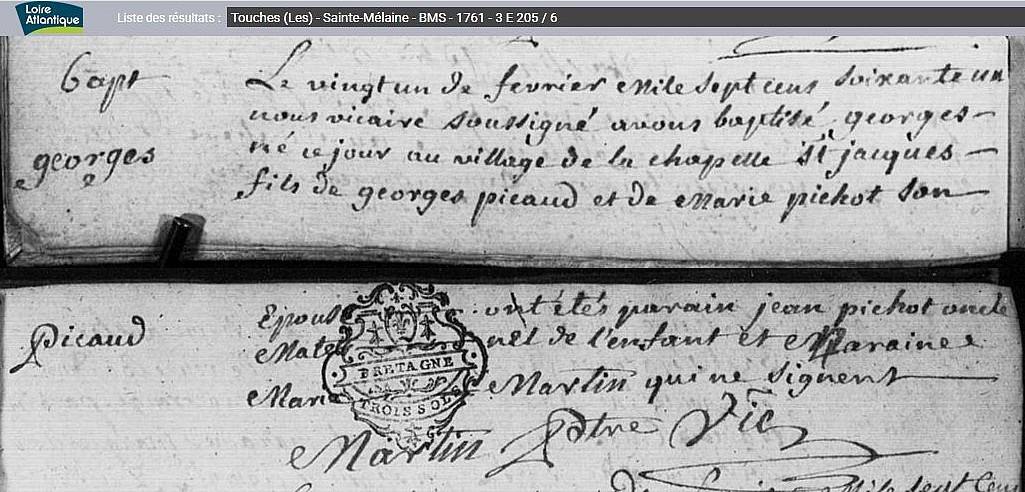 Loire
Atlantique
Liste des résultats : Touches (Les) - Sainte-Mélaine - BMS - 1761 - 3 E 205 / 6
bapt
georges
Le vingt un de fevrier mile sept cens soixante un
nous vicaire soussigné avons baptisé georges
né ce jour au village de la chapelle st jacques
fils de georges picaud et de Marie pichot son
Picaud
Epouse ont étés parain jean pichot oncle
Mater nel de l'enfant et Maraine
Marie Martin qui ne signent
BRETAGNE
TROIS SOLS
Martin Ptre Vic
Mile sept cens